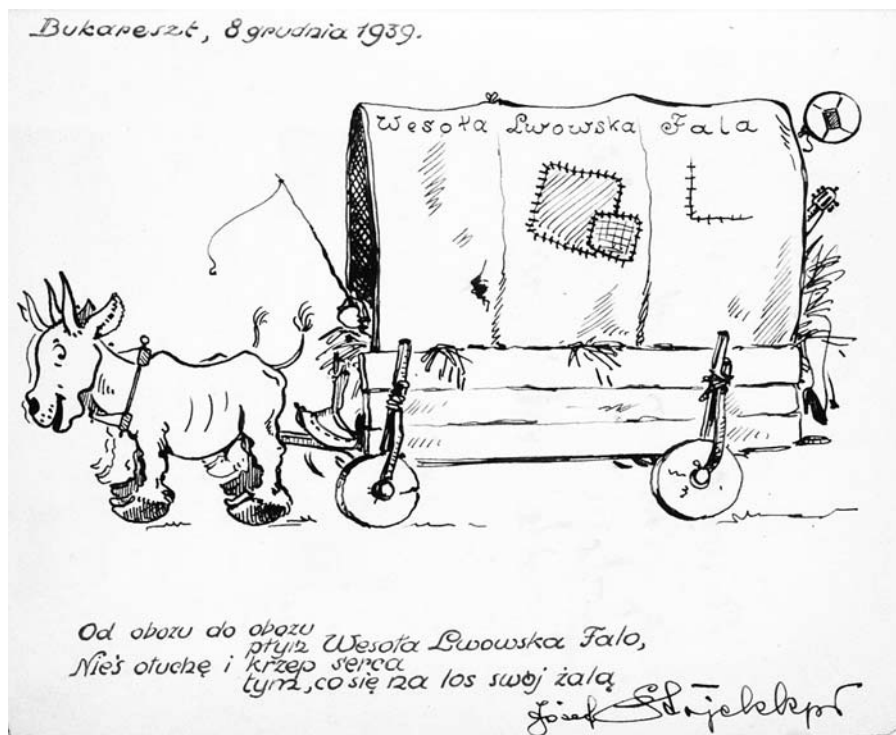 Bukareszt, 8 grudnia 1939.
Wesoła Lwowska Fala
Od obozu do obozu
płyń Wesoła Lwowska Falo,
Nieś otuchę i krzep serca
tym, co się na los swój żalą
Józef